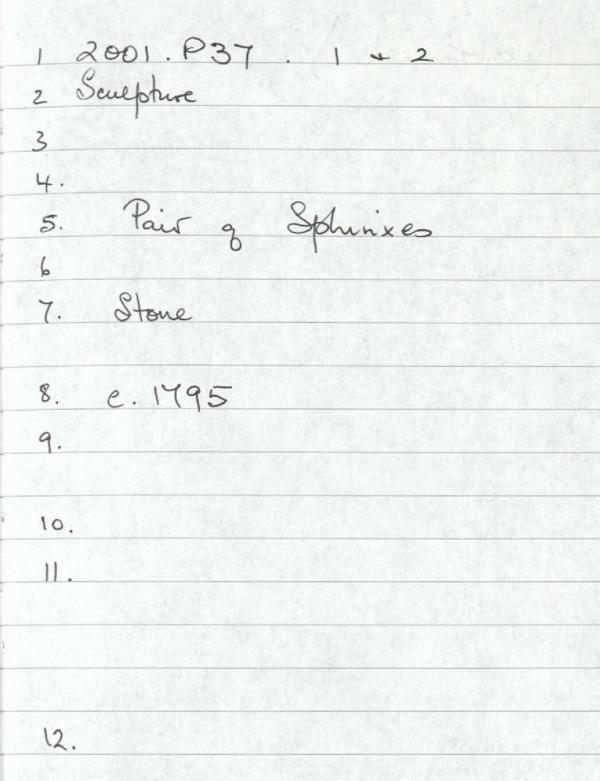 1 2001.P37 . 1 + 2
2 Sculpture
3
4.
5. Pair of Sphinxes
6
7. Stone
8. c. 1795
9.
10.
11.
12.